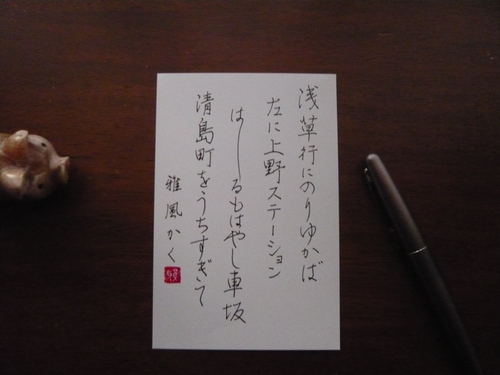 浅草行にのりゆかば
左に上野ステーション
はしるもはやし車坂
清島町をうちすぎて
雅風かく